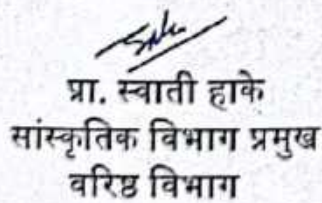 प्रा. स्वाती हाके
सांस्कृतिक विभाग प्रमुख
वरिष्ठ विभाग